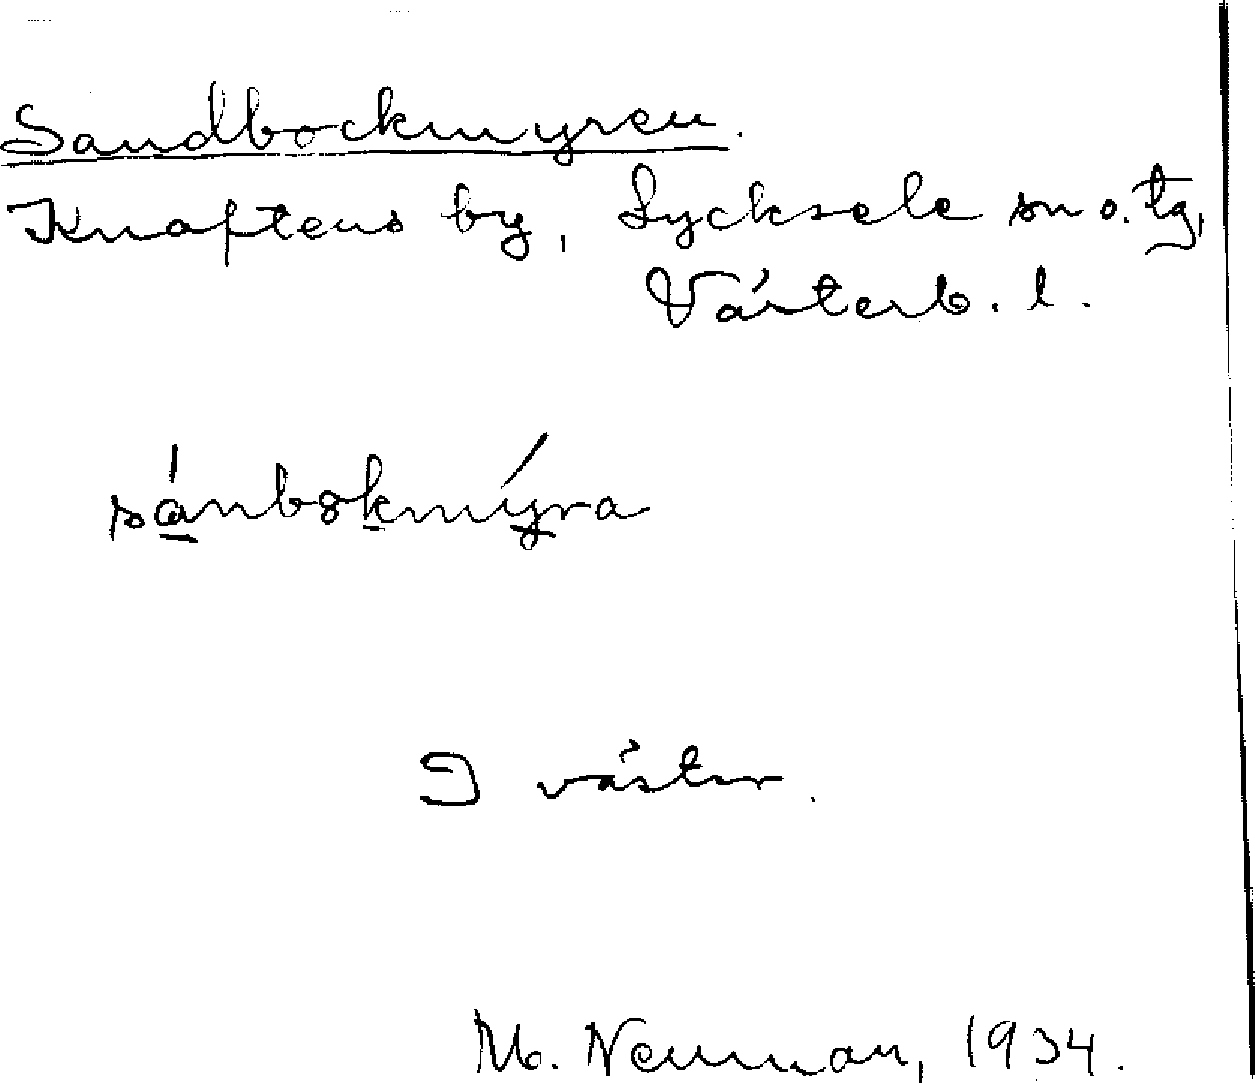 Sandbockmyren.
Knaftens by, Lycksele sn o. tg,
Västerb. l.
sánbokmýra
I väster.
M. Neuman, 1934.